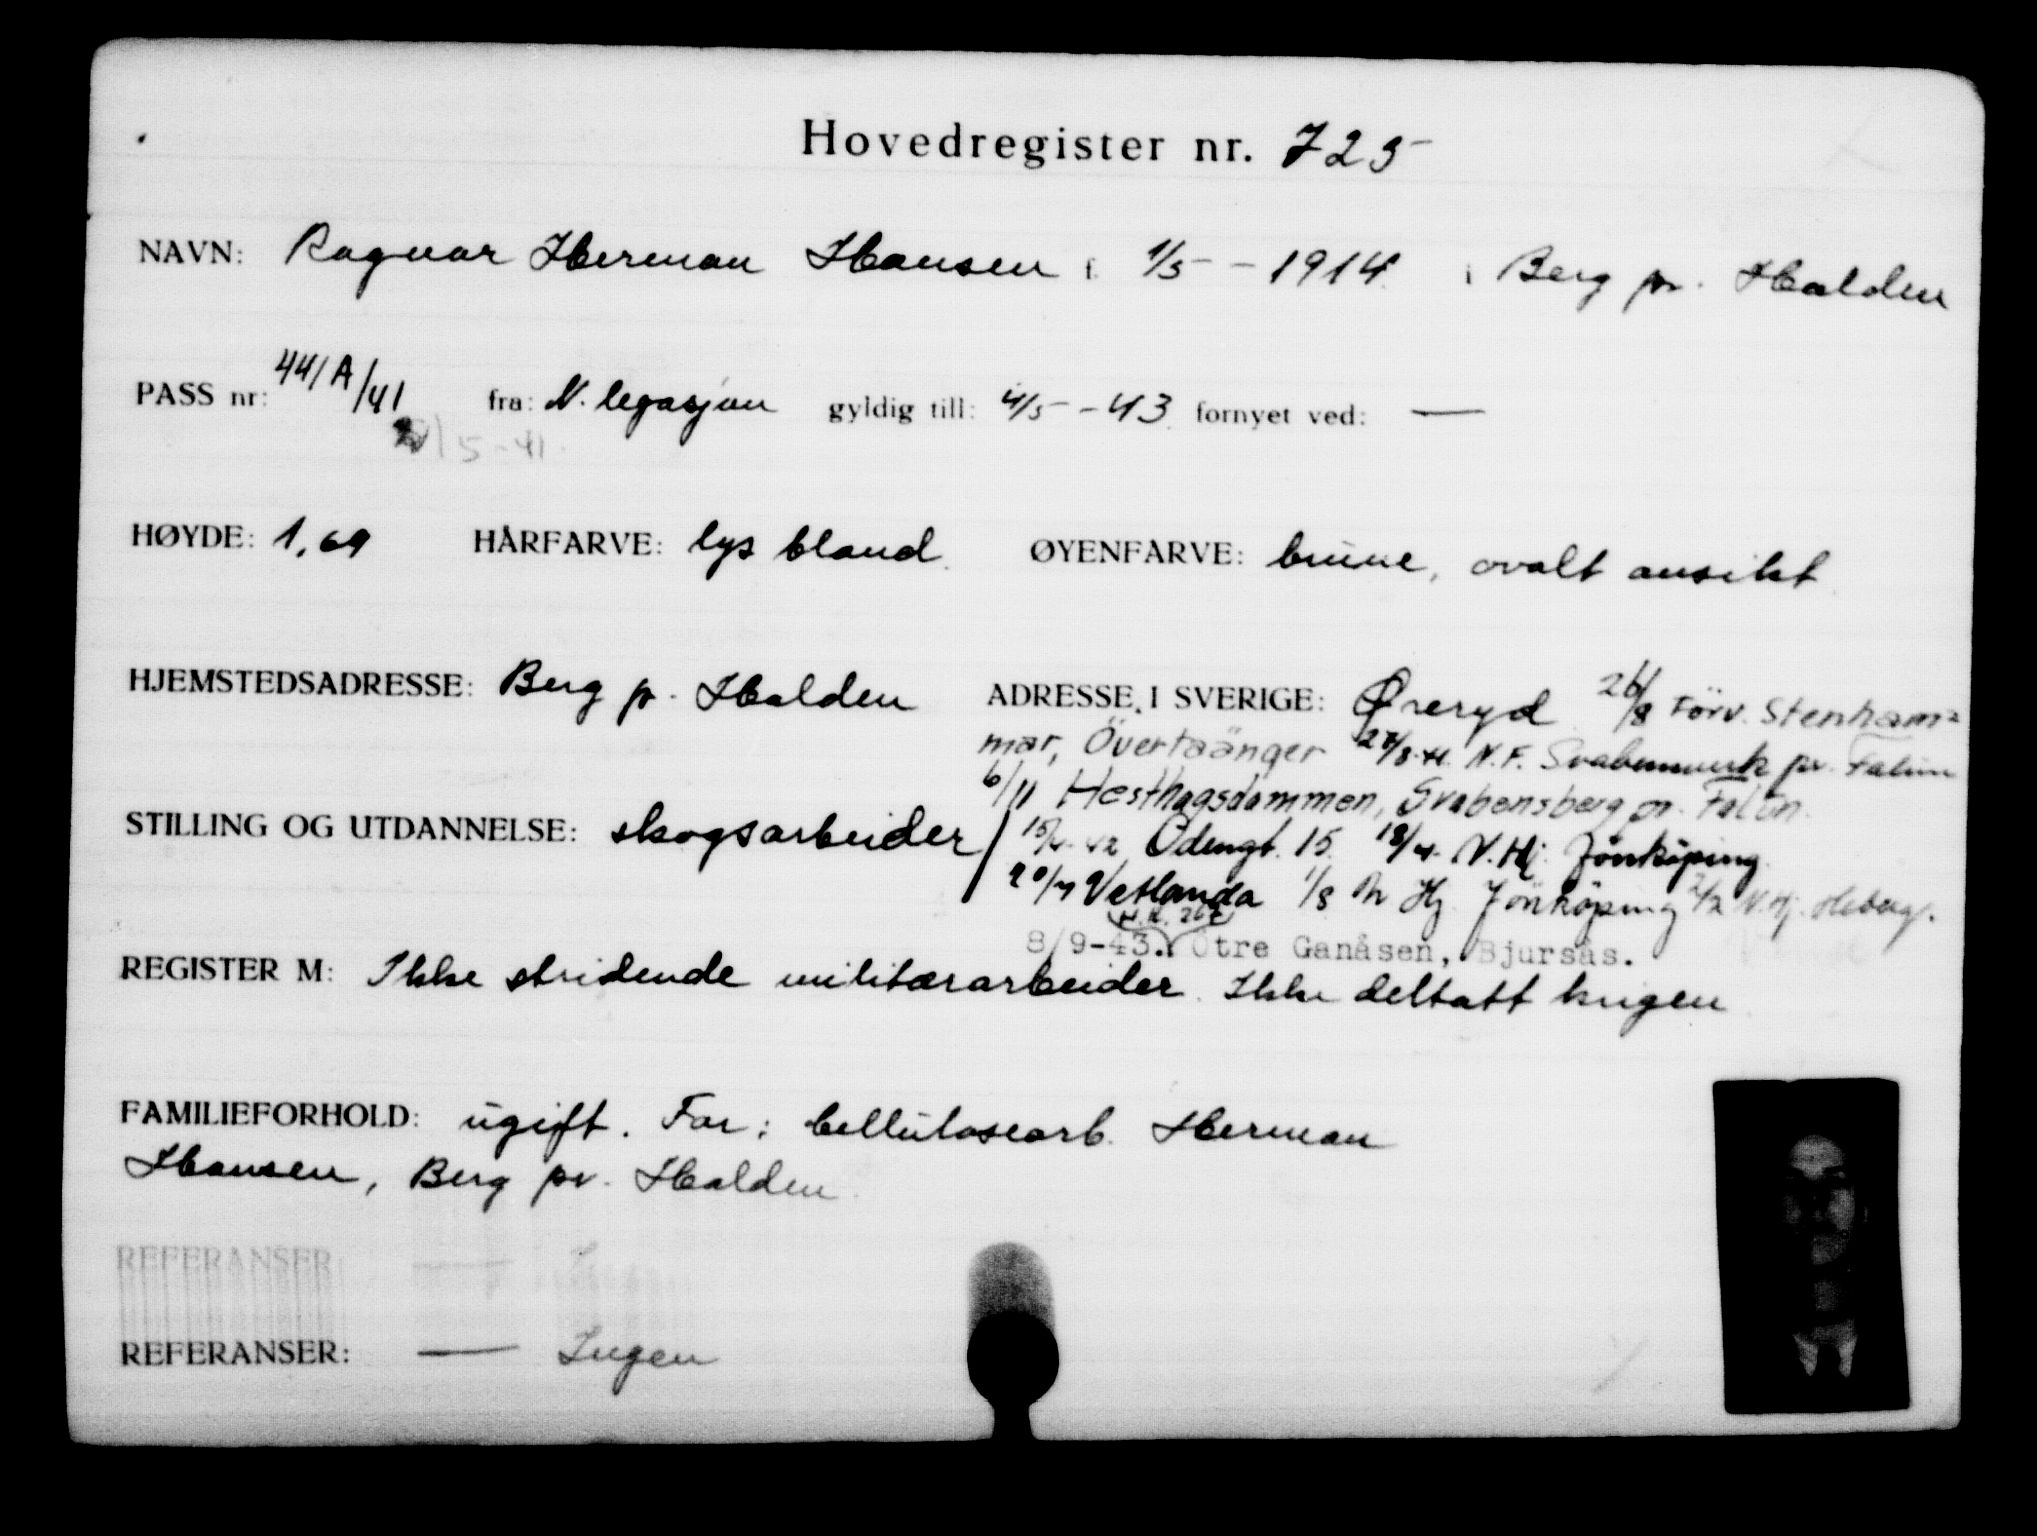 Hovedregister nr. 725
NAVN: Ragnar Herman Hansen f. 1/5 - 1914. i Berg pr. Halden
PASS nr: 441A/41 fra: N. legasjon gyldig till: 4/5 - 43 fornyet ved: —
/5-41.
HØYDE: 1,69 HÅRFARVE: lys blond. ØYENFARVE: brune, ovalt ansikt
HJEMSTEDSADRESSE: Berg pr. Halden ADRESSE I SVERIGE: Øreryd 26/8 Förv. Stenham=
mar, Övertänger 27/8-41. N.F. pr. Falun
6/11 Hesthagsdammen, Svabensberg pr. Falun.
STILLING OG UTDANNELSE: skogsarbeider / 15/4-42 Odengt. 15. 18/4. N.Hj. Jönköping
20/4 Vetlanda 1/8 N. Hj. Jönköping 2/12 N.Hj.
8/9-43. Östre Ganåsen, Bjursås.
REGISTER M: Ikke stridende militærarbeider. Ikke deltatt krigen
FAMILIEFORHOLD: ugift. Far: cellulosearb. Herman
Hansen, Berg pr. Halden.
REFERANSER: —
REFERANSER: — Ingen